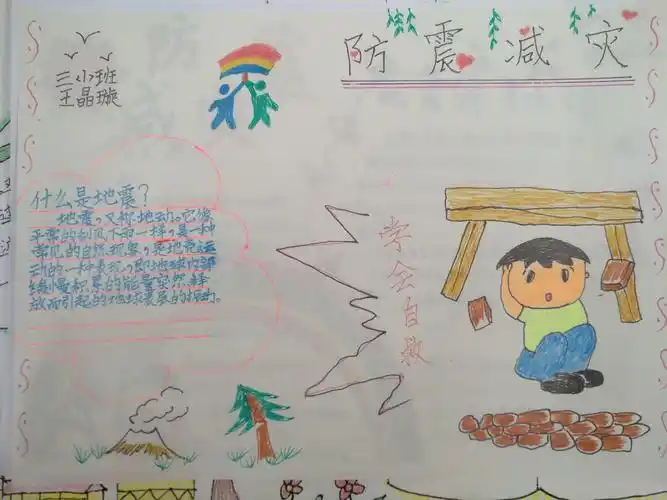 防震减灾
三小班
王晶璇
什么是地震?
地震,又称地动。它像
平常的刮风下雨一样,是一种
常见的自然现象,是地壳运
动的一种表现,即地球内部
缓慢积累的能量突然释
放而引起的地球表层的振动。
学会自救